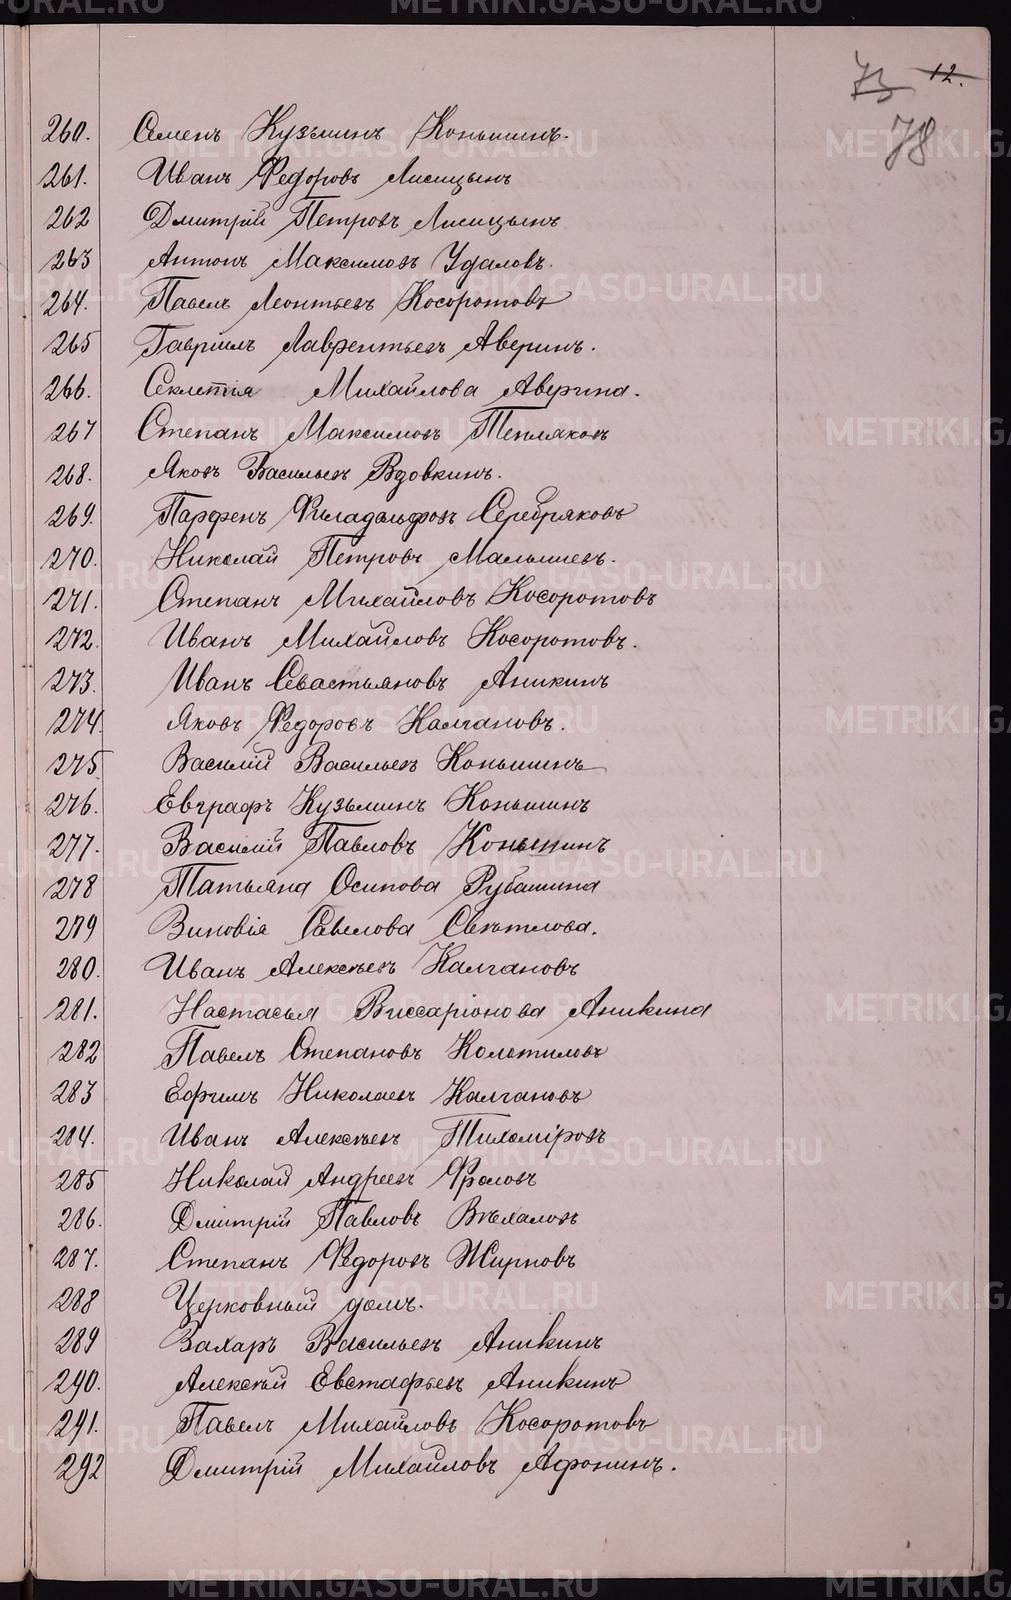 12.
73
78
260. Семенъ Кузьминъ Коньшинъ.
261. Иванъ Федоровъ Лисицынъ
262 Дмитрій Петровъ Лисицынъ
263 Антонъ Максимовъ Удаловъ.
264. Павелъ Леонтьевъ Косоротовъ
265 Гавріилъ Лаврентьевъ Аверинъ.
266. Секлетія Михайлова Аверина.
267 Степанъ Максимовъ Тепляковъ
268. Яковъ Васильевъ Вдовкинъ.
269. Парфенъ Филадельфовъ Серебряковъ
270. Николай Петровъ Малышевъ.
271. Степанъ Михайловъ Косоротовъ
272. Иванъ Михайловъ Косоротовъ.
273. Иванъ Севастьяновъ Аникинъ
274. Яковъ Федоровъ Калгановъ.
275 Василій Васильевъ Коньшинъ
276. Евграфъ Кузьминъ Коньшинъ
277. Василій Павловъ Коньшинъ
278 Татьяна Осипова Рубашина
279 Зиновія Савелова Свѣтлова.
280. Иванъ Алексѣевъ Калгановъ
281. Настасья Виссаріонова Аникина
282 Павелъ Степановъ Колотиловъ
283 Ефимъ Николаевъ Калгановъ
284. Иванъ Алексѣевъ Тихоміровъ
285 Николай Андреевъ Фроловъ
286. Дмитрій Павловъ Въхаловъ
287. Степанъ Федоровъ Жирновъ
288 Церковный домъ.
289 Захаръ Васильевъ Аникинъ
290. Алексѣй Евстафьевъ Аникинъ
291. Павелъ Михайловъ Косоротовъ
292 Дмитрій Михайловъ Афонинъ.
METRIKI.GASO-URAL.RU